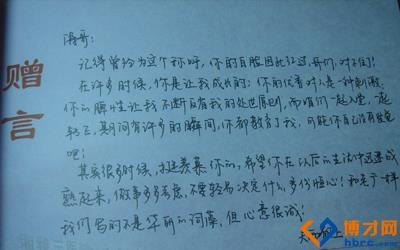 赠言
涛哥：
记得曾经为这个称呼，你的耳朵因此红过，哥们，对不住！
在许多时候，你是让我成长的；你的优秀对人是一种刺激，
你的脾性让我不断反省我的处世原则，而咱们一起入党，一起
期间有许多的瞬间，你都教育了我，可能你自己没有发觉
吧！
其实很多时候，挺羡慕你的，希望你在以后的生活中迅速成
熟起来，做事多多考虑，不要轻易决定什么，多份恒心！和老广一样
我们写的不是华丽的词藻，但心意很诚！
博才网
hbrc.com